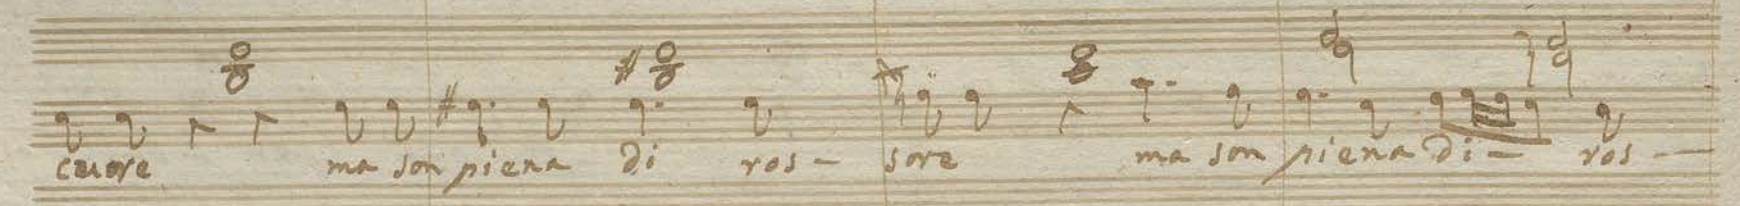 cuore ma son piena di ros- sore ma son piena di- ros-